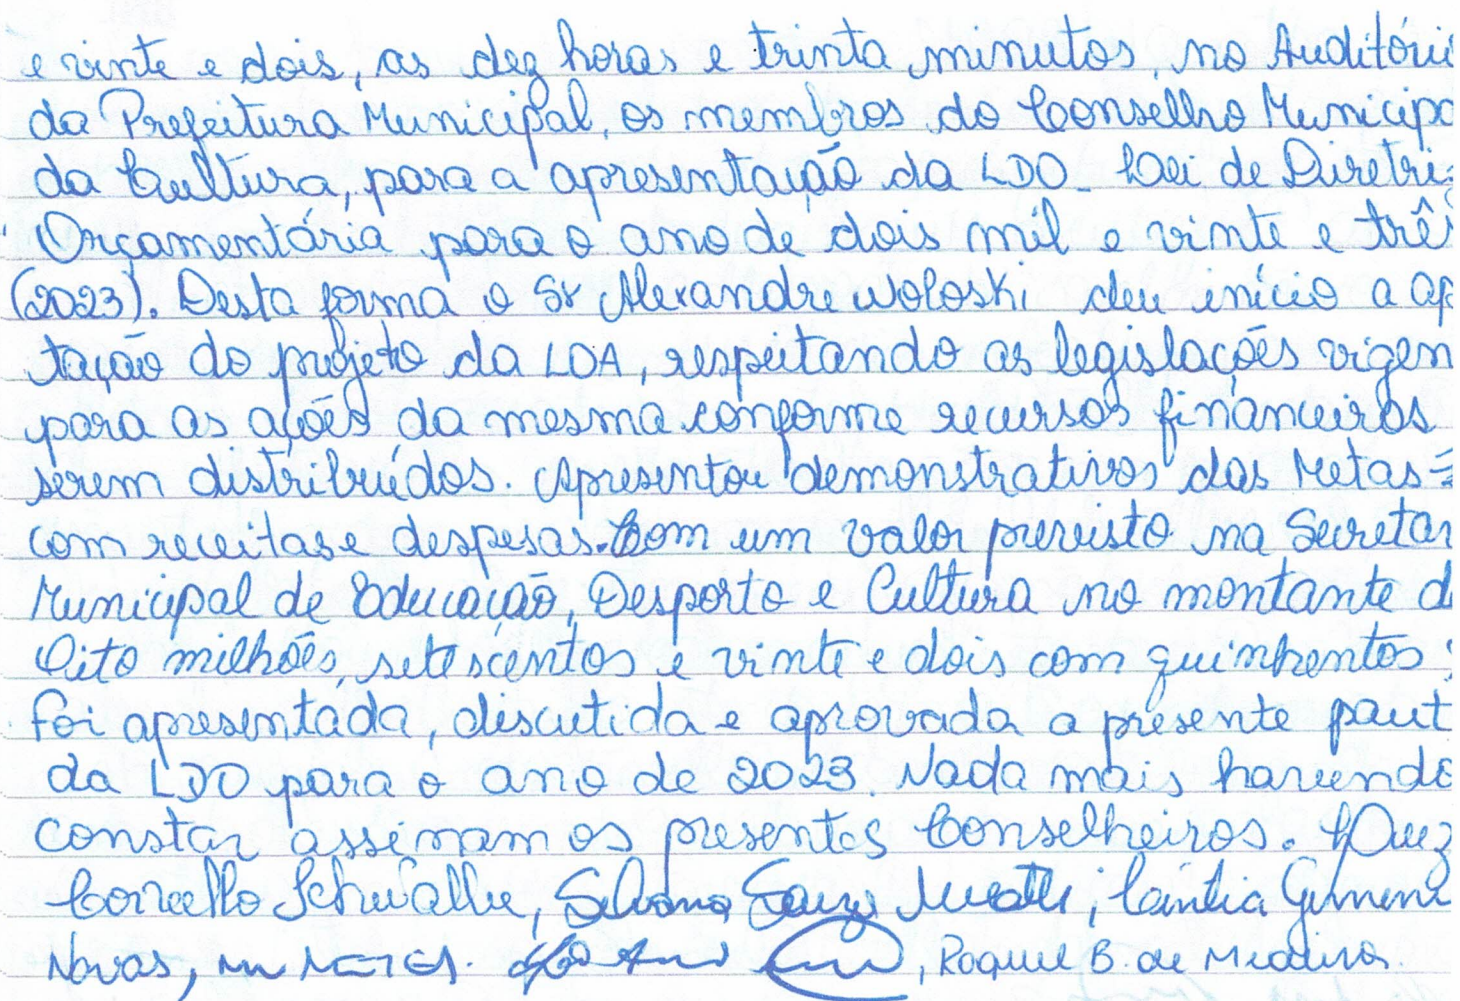 e vinte e dois, as dez horas e trinta minutos, no Auditóri
da Prefeitura Municipal, os membros do Conselho Municipa
da Cultura, para a apresentação da LDO - Lei de Diretri
Orçamentária para o ano de dois mil e vinte e trê
(2023). Desta forma o Sr Alexandre Woloski deu início a ap
tação do projeto da LOA, respeitando as legislações vigen
para as ações da mesma conforme recursos financeiros
serem distribuídos. Apresentou demonstrativos das Metas
com receitas e despesas. Com um valor previsto na Secretar
Municipal de Educação, Desporto e Cultura no montante d
Oito milhões, setescentos e vinte e dois com quinhentos
Foi apresentada, discutida e aprovada a presente paut
da LDO para o ano de 2023. Nada mais havendo
constar assinam os presentes Conselheiros.
Silvana Souza
Novas, Raquel B. de Medeiros.